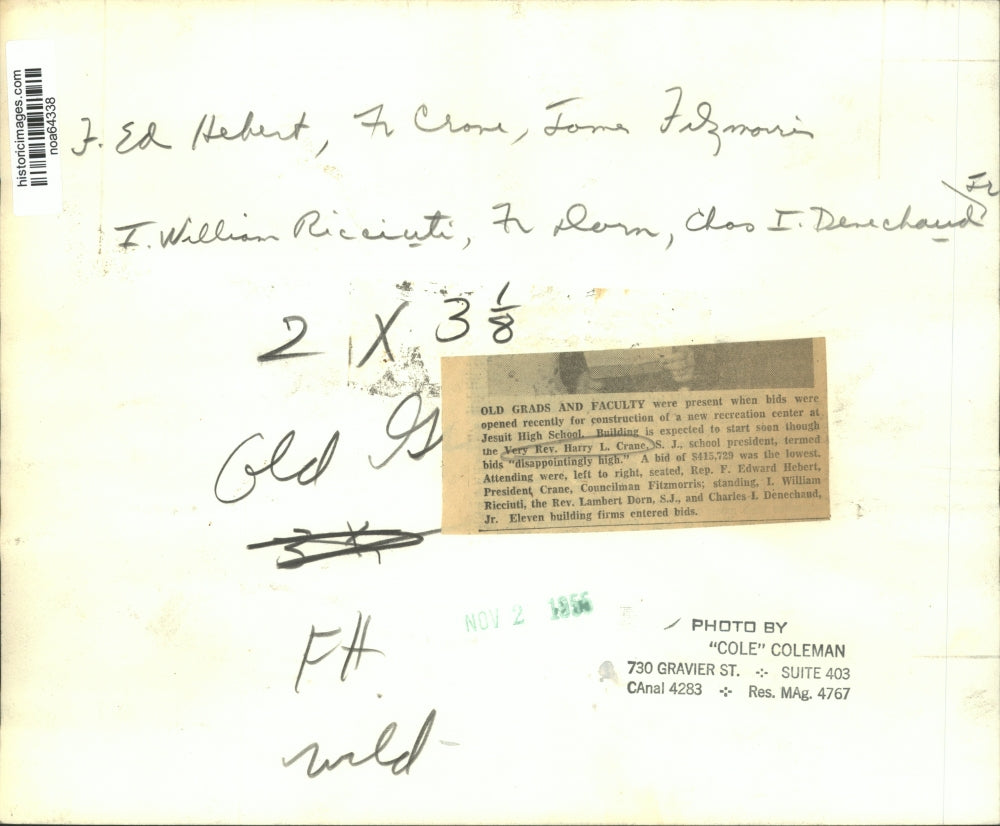 historicimages.com
noa64338
F. Ed Hebert, Fr Crane, James Fitzmorris
I. William Ricciuti, Fr Dorn, Chas I. Denechaud Jr
2 X 3 1/8
Old
OLD GRADS AND FACULTY were present when bids were
opened recently for construction of a new recreation center at
Jesuit High School. Building is expected to start soon though
the Very Rev. Harry L. Crane, S. J., school president, termed
bids "disappointingly high." A bid of $415,729 was the lowest.
Attending were, left to right, seated, Rep. F. Edward Hebert,
President Crane, Councilman Fitzmorris; standing, I. William
Ricciuti, the Rev. Lambert Dorn, S.J., and Charles I. Denechaud,
Jr. Eleven building firms entered bids.
NOV 2 1955
FH
wild
PHOTO BY
"COLE" COLEMAN
730 GRAVIER ST. -:- SUITE 403
CAnal 4283 -:- Res. MAg. 4767